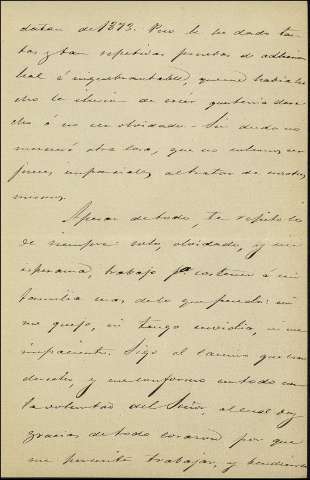 datan de 1873. Pero le he dado tan-
tas y tan repetidas pruebas de adhesion
leal é inquebrantable, que me habia he-
cho la ilusion de creer que tenia dere-
cho á no ser olvidado. Sin duda no
mereceré otra cosa, que no solemos ser
jueces imparciales al tratar de nosotros
mismos.
Apesar de todo, te repito lo
de siempre solo, olvidado, y sin
esperanza, trabajo pª sostener á mi
familia mas de lo que puedo: ni
me quejo, ni tengo envidia, ni me
impaciento. Sigo el camino que
y me conformo en todo con
la voluntad del Señor, al cual doy
gracias de todo corazon por que
me permite trabajar, y